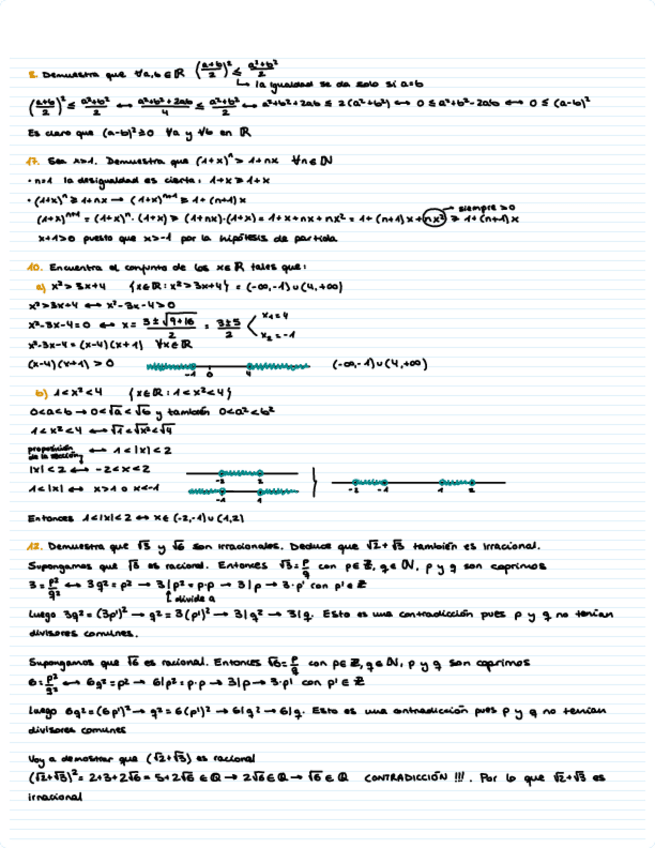 8. Demuestra que ∀a,b ∈ ℝ ((a+b)/2)² ≤ (a²+b²)/2
↳ la igualdad se da solo si a=b
((a+b)/2)² ≤ (a²+b²)/2 ↔ (a²+b²+2ab)/4 ≤ (a²+b²)/2 ↔ a²+b²+2ab ≤ 2(a²+b²) ↔ 0 ≤ a²+b²-2ab ↔ 0 ≤ (a-b)²
Es claro que (a-b)² ≥ 0 ∀a y ∀b en ℝ
17. Sea x>1. Demuestra que (1+x)ⁿ > 1+nx ∀n ∈ ℕ
· n=1 la desigualdad es cierta: 1+x ≥ 1+x
· (1+x)ⁿ ≥ 1+nx → (1+x)ⁿ⁺¹ ≥ 1+(n+1)x
→ siempre >0
(1+x)ⁿ⁺¹ = (1+x)ⁿ · (1+x) ≥ (1+nx)·(1+x) = 1+x+nx+nx² = 1+(n+1)x+nx² ≥ 1+(n+1)x
x+1>0 puesto que x>-1 por la hipótesis de partida
10. Encuentra el conjunto de los x∈ℝ tales que:
a) x²>3x+4 {x∈ℝ: x²>3x+4} = (-∞,-1)∪(4,+∞)
x²>3x+4 ↔ x²-3x-4>0
x²-3x-4=0 ↔ x = (3±√(9+16))/2 = (3±5)/2 < x₁=4
x₂=-1
x²-3x-4 = (x-4)(x+1) ∀x∈ℝ
(x-4)(x+1) > 0 -1 0 4 (-∞,-1)∪(4,+∞)
b) 1<x²<4 {x∈ℝ: 1<x²<4}
0<a<b → 0<√a<√b y también 0<a²<b²
1<x²<4 ↔ √1<√x²<√4
proposición de la sección ↔ 1<|x|<2
|x|<2 ↔ -2<x<2 -2 2
1<|x| ↔ x>1 o x<-1 -1 1 } -2 -1 1 2
Entonces 1<|x|<2 ↔ x∈(-2,-1)∪(1,2)
12. Demuestra que √3 y √6 son irracionales. Deduce que √2+√3 también es irracional.
Supongamos que √3 es racional. Entonces √3=p/q con p∈ℤ, q∈ℕ, p y q son coprimos
3=p²/q² ↔ 3q²=p² → 3|p²=p·p → 3|p → 3·p' con p'∈ℤ
↑ divide a
Luego 3q²=(3p')² → q²=3(p')² → 3|q² → 3|q. Esto es una contradicción pues p y q no tenían
divisores comunes.
Supongamos que √6 es racional. Entonces √6=p/q con p∈ℤ, q∈ℕ, p y q son coprimos
6=p²/q² ↔ 6q²=p² → 6|p²=p·p → 3|p → 3·p' con p'∈ℤ
Luego 6q²=(6p')² → q²=6(p')² → 6|q² → 6|q. Esto es una contradicción pues p y q no tenían
divisores comunes
Voy a demostrar que (√2+√3) es racional
(√2+√3)² = 2+3+2√6 = 5+2√6 ∈ℚ → 2√6∈ℚ → √6∈ℚ CONTRADICCIÓN !!!. Por lo que √2+√3 es
irracional